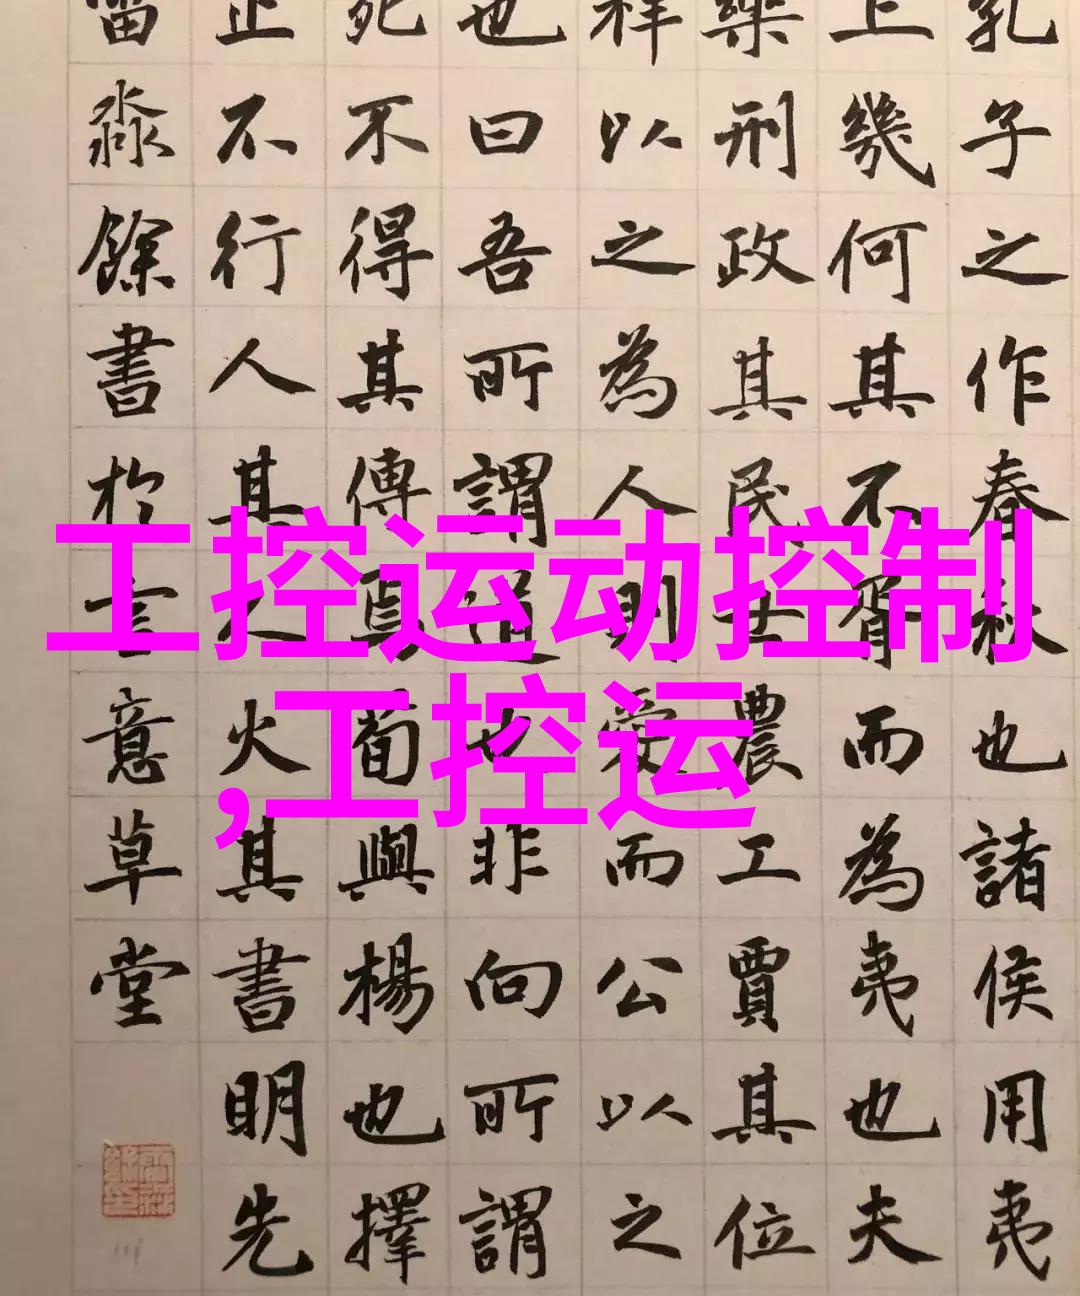 孔子之作春秋也諸侯用夷
上幾何其不胥而為夷也夫
樂刑政其民士農工賈其位
祥以之為人則愛而公以之
也曰吾所謂道也非向所謂
死不得其傳焉荀與楊也擇
止不行人其人火其書明先
淼餘書於意草堂
工控运动控制
,工控运